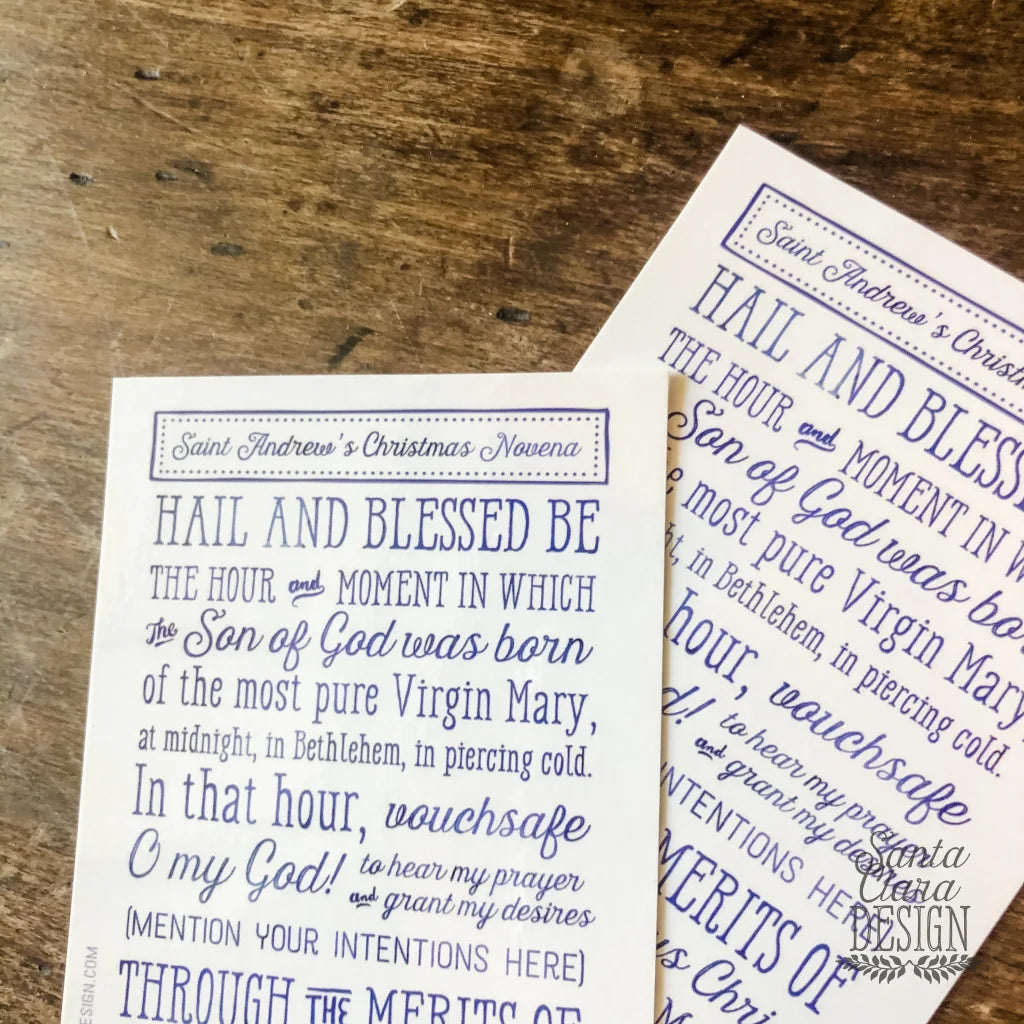 Saint Andrew's Christmas Novena
HAIL AND BLESSED BE
THE HOUR and MOMENT IN WHICH
The Son of God was born
of the most pure Virgin Mary,
at midnight, in Bethlehem, in piercing cold.
In that hour, vouchsafe
O my God! to hear my prayer
and grant my desires
(MENTION YOUR INTENTIONS HERE)
THROUGH THE MERITS OF
DESIGN.COM
Saint Andrew's Christ
HAIL AND BLESS
THE HOUR and MOMENT IN W
Son of God was bo
most pure Virgin Mary
ht, in Bethlehem, in piercing cold.
hour, vouchsafe
d! to hear my prayer
and grant my desires
INTENTIONS HERE)
MERITS OF
us Chri
Santa
Clara
DESIGN